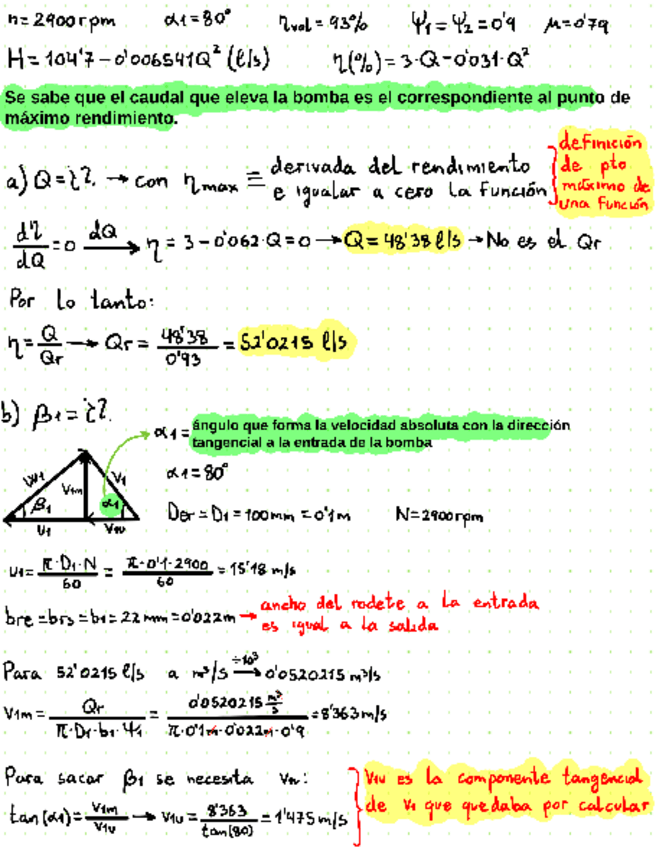 n=2900rpm α1=80° ηvol=93% Ψ1=Ψ2=0'9 μ=0'79
H=104'7-0'006541Q² (l/s) η(%)=3·Q-0'031·Q²
Se sabe que el caudal que eleva la bomba es el correspondiente al punto de
máximo rendimiento.
a) Q=¿?. → con ηmax ≡ derivada del rendimiento
e igualar a cero la función
definición
de pto
máximo de
una función
dη/dQ=0 dQ→ η=3-0'062·Q=0 → Q=48'38 l/s → No es el Qr
Por lo tanto:
η=Q/Qr → Qr=48'38/0'93=52'0215 l/s
b) β1=¿?.
α1= ángulo que forma la velocidad absoluta con la dirección
tangencial a la entrada de la bomba
W1 V1m V1 β1 α1 U1 V1u
α1=80°
Der=D1=100mm=0'1m N=2900rpm
U1=π·D1·N/60=π·0'1·2900/60=15'18 m/s
bre=brs=b1=22mm=0'022m → ancho del rodete a la entrada
es igual a la salida
Para 52'0215 l/s a m³/s ÷10³→ 0'0520215 m³/s
V1m=Qr/π·D1·b1·Ψ1=0'0520215 m³/s/π·0'1m·0'022m·0'9=8'363m/s
Para sacar β1 se necesita V1u:
tan(α1)=V1m/V1u → V1u=8'363/tan(80)=1'475m/s
V1u es la componente tangencial
de V1 que quedaba por calcular